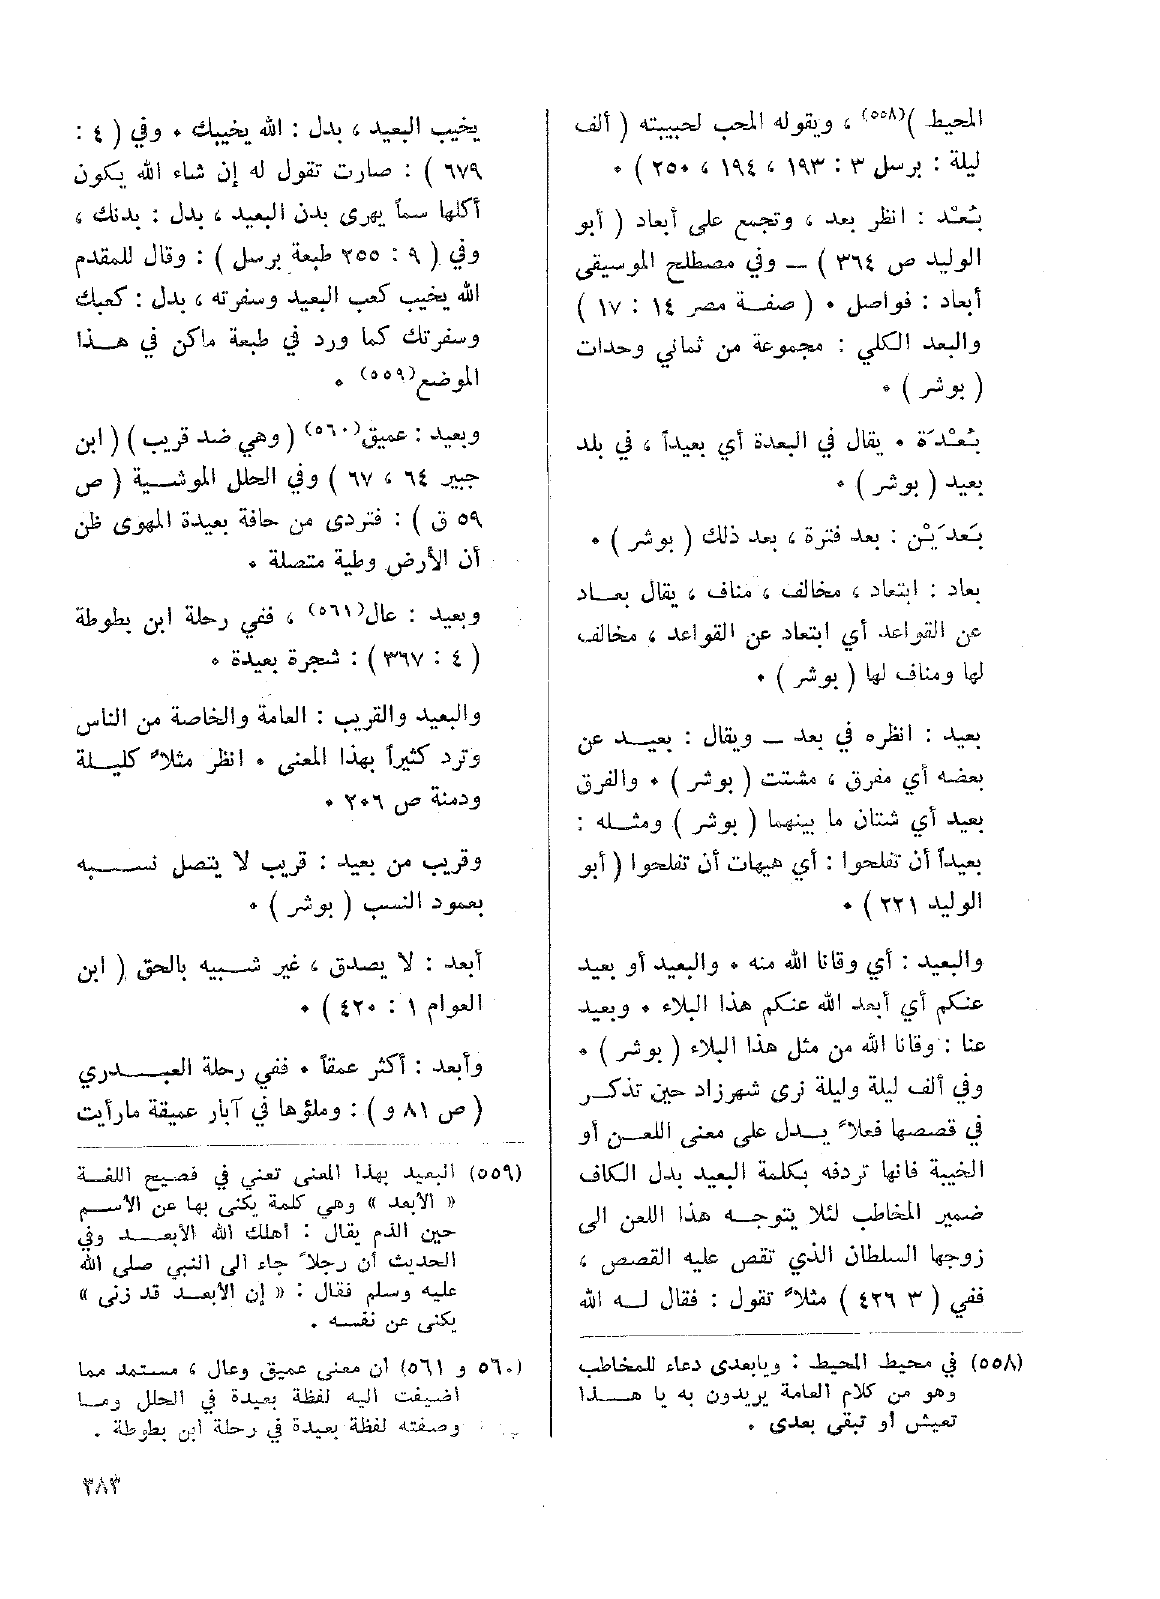 المحيط )(٥٥٨) ، ويقوله المحب لحبيبته ( ألف
ليلة : برسل ٣ : ١٩٣ ، ١٩٤ ، ٢٥٠ ) •
بُعْد : انظر بعد ، وتجمع على أبعاد ( أبو
الوليد ص ٣٦٤ ) ــ وفي مصطلح الموسيقى
أبعاد : فواصل • ( صفة مصر ١٤ : ١٧ )
والبعد الكلي : مجموعة من ثماني وحدات
( بوشر ) •
بُعْدَة • يقال في البعدة أي بعيداً ، في بلد
بعيد ( بوشر ) •
بَعدَيْن : بعد فترة ، بعد ذلك ( بوشر ) •
بعاد : ابتعاد ، مخالف ، مناف ، يقال بعاد
عن القواعد أي ابتعاد عن القواعد ، مخالف
لها ومناف لها ( بوشر ) •
بعيد : انظره في بعد ــ ويقال : بعيد عن
بعضه أي مفرق ، مشتت ( بوشر ) • والفرق
بعيد أي شتان ما بينهما ( بوشر ) ومثله :
بعيداً أن تفلحوا : أي هيهات أن تفلحوا ( أبو
الوليد ٢٢١ ) •
والبعيد : أي وقانا الله منه • والبعيد أو بعيد
عنكم أي أبعد الله عنكم هذا البلاء • وبعيد
عنا : وقانا الله من مثل هذا البلاء ( بوشر ) •
وفي ألف ليلة وليلة نرى شهرزاد حين تذكر
في قصصها فعلاً يدل على معنى اللعن أو
الخيبة فانها تردفه بكلمة البعيد بدل الكاف
ضمير المخاطب لئلا يتوجه هذا اللعن الى
زوجها السلطان الذي تقص عليه القصص ،
ففي ( ٣ ٤٢٦ ) مثلاً تقول : فقال له الله
(٥٥٨) في محيط المحيط : ويابعدى دعاء للمخاطب
وهو من كلام العامة يريدون به يا هذا
تعيش أو تبقى بعدى •
يخيب البعيد ، بدل : الله يخيبك • وفي ( ٤ :
٦٧٩ ) : صارت تقول له إن شاء الله يكون
أكلها سماً يهرى بدن البعيد ، بدل : بدنك ،
وفي ( ٩ : ٢٥٥ طبعة برسل ) : وقال للمقدم
الله يخيب كعب البعيد وسفرته ، بدل : كعبك
وسفرتك كما ورد في طبعة ماكن في هذا
الموضع(٥٥٩) •
وبعيد : عميق(٥٦٠) ( وهي ضد قريب ) ( ابن
جبير ٦٤ ، ٦٧ ) وفي الحلل الموشية ( ص
٥٩ ق ) : فتردى من حافة بعيدة المهوى ظن
أن الأرض وطية متصلة •
وبعيد : عال(٥٦١) ، ففي رحلة ابن بطوطة
( ٤ : ٣٦٧ ) : شجرة بعيدة •
والبعيد والقريب : العامة والخاصة من الناس
وترد كثيراً بهذا المعنى • انظر مثلاً كليلة
ودمنة ص ٢٠٦ •
وقريب من بعيد : قريب لا يتصل نسبه
بعمود النسب ( بوشر ) •
أبعد : لا يصدق ، غير شبيه بالحق ( ابن
العوام ١ : ٤٢٠ ) •
وأبعد : أكثر عمقاً • ففي رحلة العبدري
( ص ٨١ و ) : وملؤها في آبار عميقة مارأيت
(٥٥٩) البعيد بهذا المعنى تعني في فصيح اللغة
« الأبعد » وهي كلمة يكنى بها عن الاسم
حين الذم يقال : أهلك الله الأبعد وفي
الحديث أن رجلاً جاء الى النبي صلى الله
عليه وسلم فقال : « إن الأبعد قد زنى »
يكنى عن نفسه .
(٥٦٠ و ٥٦١) ان معنى عميق وعال ، مستمد مما
اضيفت اليه لفظة بعيدة في الحلل وما
وصفته لفظة بعيدة في رحلة ابن بطوطة .
٣٨٣